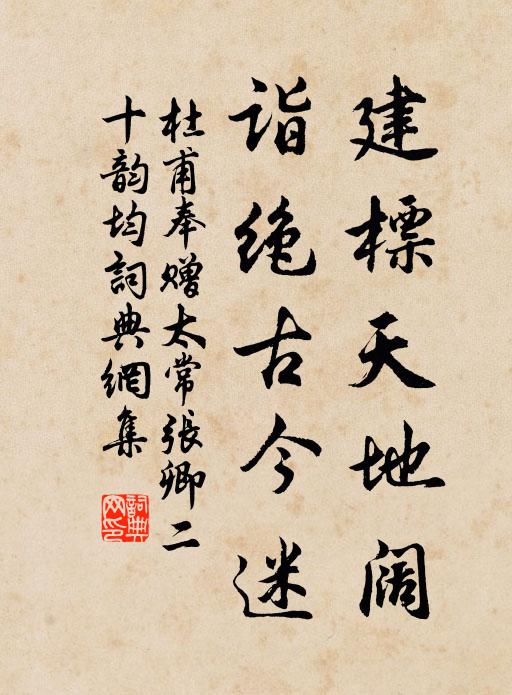 建標天地阔
詣绝古今迷
杜甫奉赠太常張卿二
十韵均詞典網集
詞典
网印